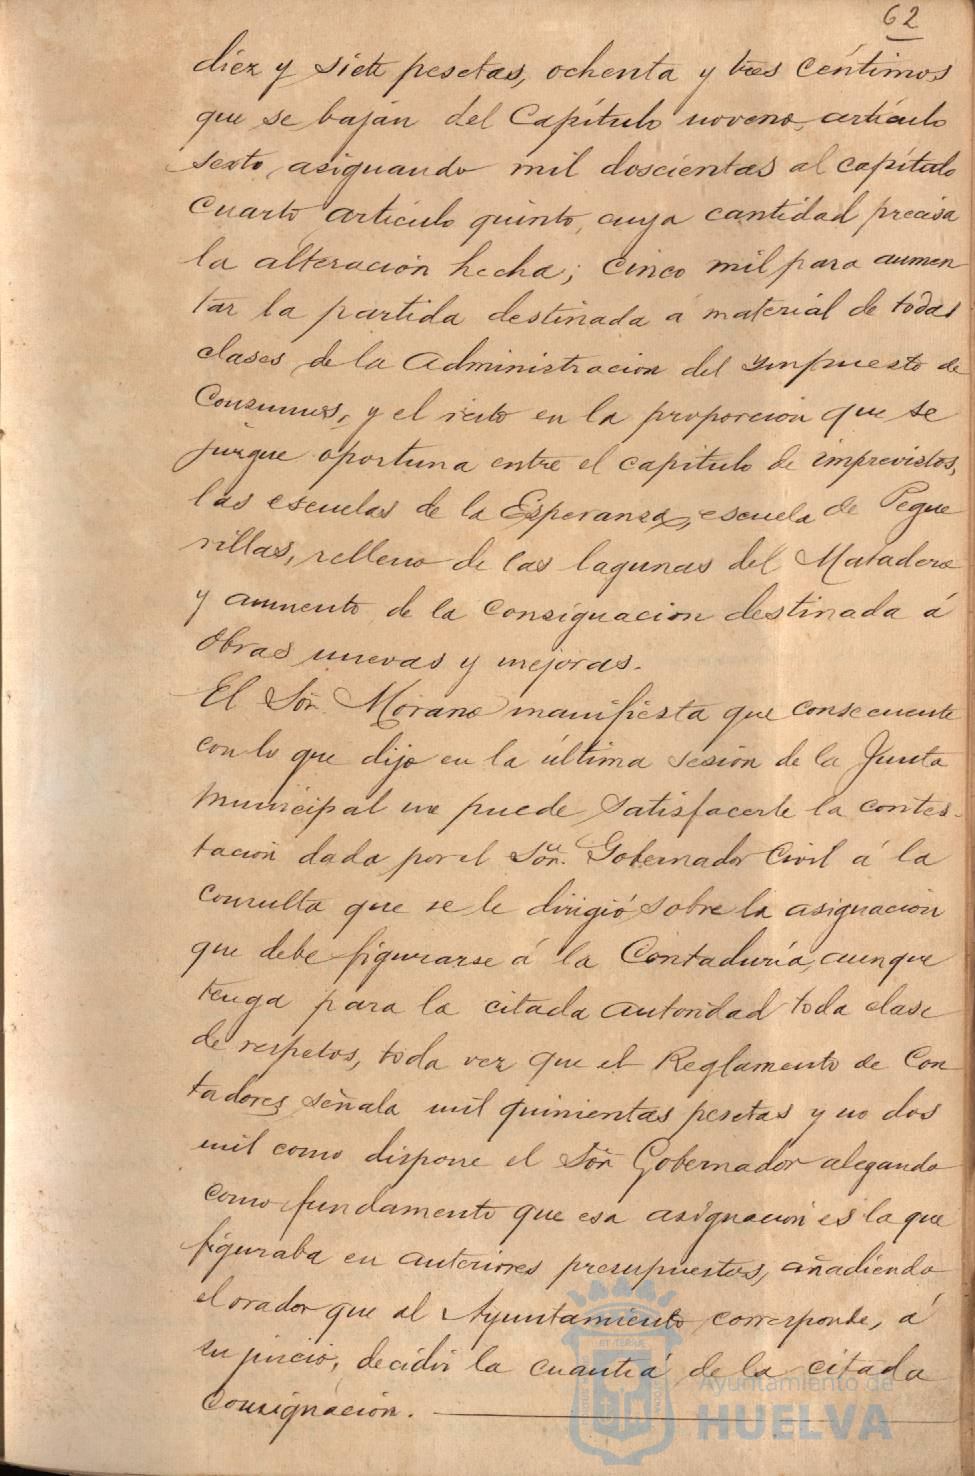 62
diez y siete pesetas, ochenta y tres céntimos
que se bajan del Capítulo noveno, artículo
sexto, asignando mil doscientas al capítulo
Cuarto artículo quinto, cuya cantidad precisa
la alteración hecha; cinco mil para aumen
tar la partida destinada á material de todas
clases de la Administracion del Ympuesto de
Consumos, y el resto en la proporcion que se
juzgue oportuna entre el capitulo de imprevistos,
las escuelas de la Esperanza, escuela de Pegue
rillas, relleno de las lagunas del Matadero
y aumento de la consignacion destinada á
Obras nuevas y mejoras.
El Sór. Morano manifiesta que consecuente
con lo que dijo en la última sesión de la Junta
Municipal no puede satisfacerle la contes-
tación dada por el Sór. Gobernador Civil á la
consulta que se le dirigió sobre la asignación
que debe figurarse á la Contaduría, aunque
tenga para la citada autoridad toda clase
de respetos, toda vez que el Reglamento de Con
tadores señala mil quinientas pesetas y no dos
mil como dispone el Sór Gobernador alegando
como fundamento que esa asignación es la que
figuraba en anteriores presupuestos, añadiendo
el orador que al Ayuntamiento corresponde, á
su juicio, decidir la cuantía de la citada
Consignación.
Ayuntamiento de
HUELVA